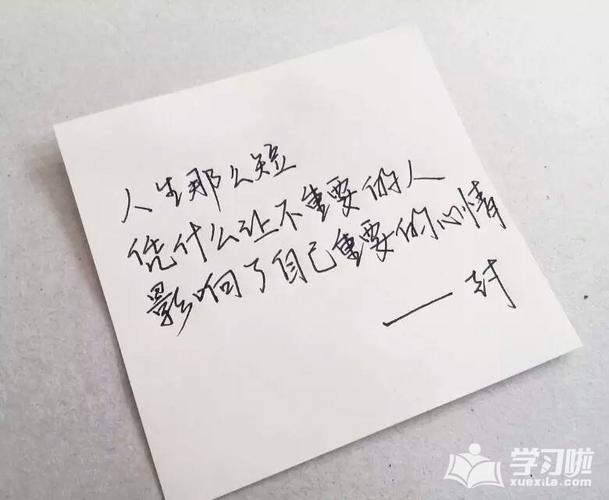 人生那么短
凭什么让不重要的人
影响了自己重要的心情
——封
学习啦
xuexila.com